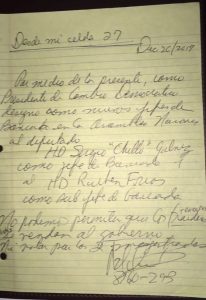 Desde mi celda 27
Dic 26/2018
Por medio de la presente, como
Presidente de Cambio Democratico
designo como nuevos jefe de
Bancada en la Asamblea Nacional
al diputado
HD Sergio "Chello" Galvez
como jefe de Bancada
al HD Ruben Frias
como sub jefe de bancada
No podemos permitir que los
se vendan al gobierno
Ni votar por los
8-160-293